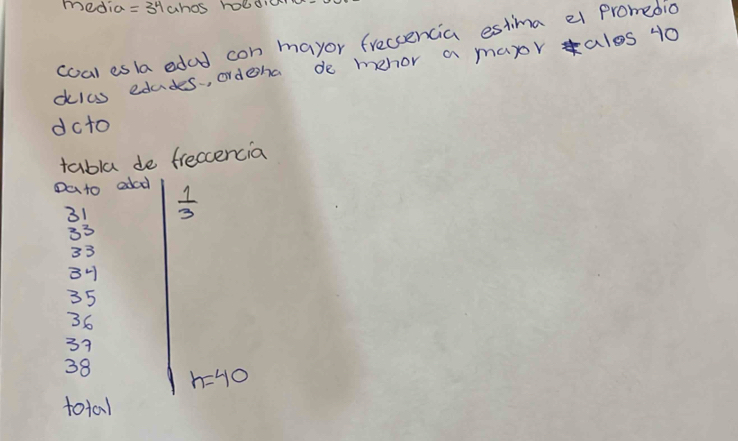 media = 34 anos
cual es la edad con mayor freccencia estima el promedio
delas edades., ordena de menor a mayor alos 40
dcto
tabla de freccencia
Dato edad
1
3
31
33
33
34
35
36
37
38
n=40
total